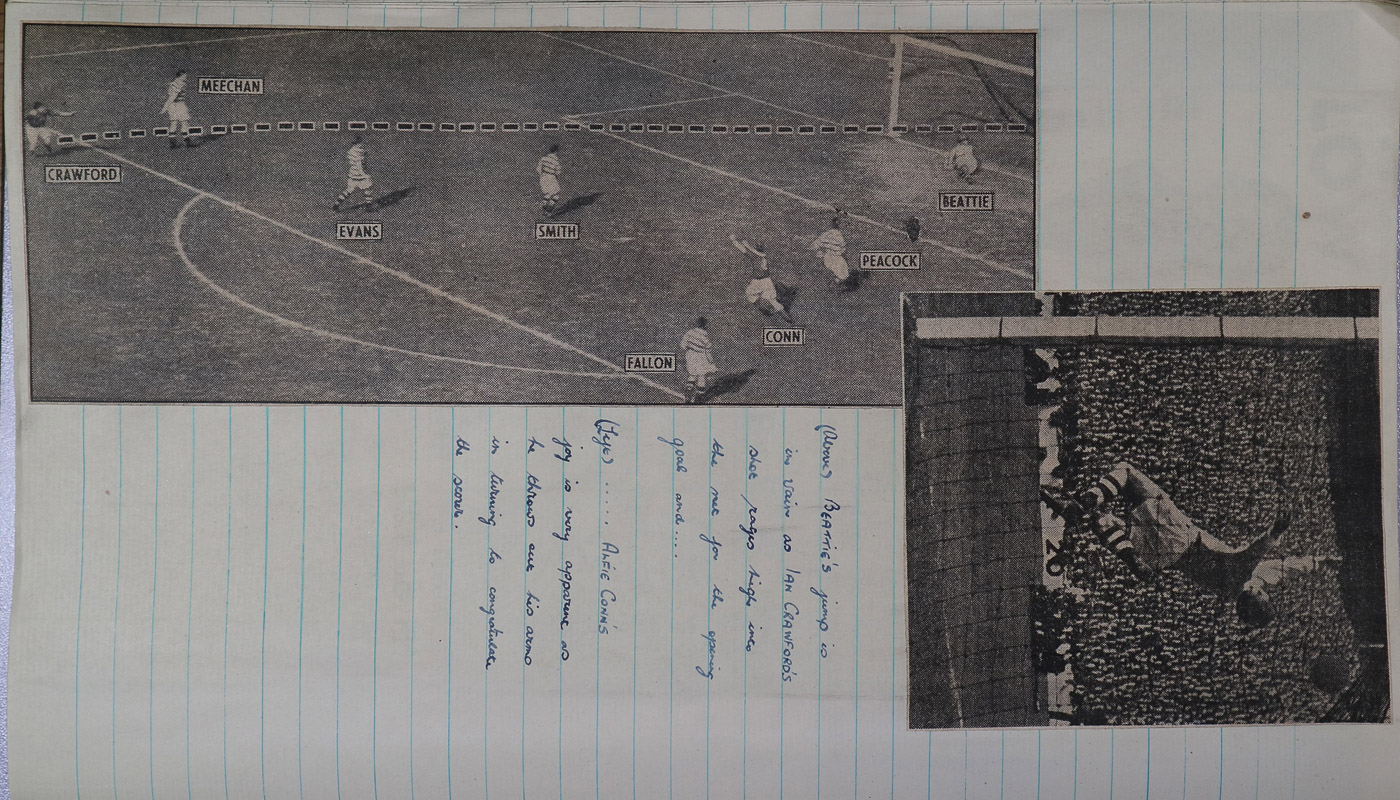 MEECHAN
CRAWFORD
EVANS
SMITH
BEATTIE
PEACOCK
CONN
FALLON
26
(Above) BEATTIE'S jump is
in vain as IAN CRAWFORD'S
shot rages high into
the net for the opening
goal and.....
(Left) ..... ALFIE CONN'S
joy is very apparent as
he throws out his arms
in turning to congratulate
the scorer.